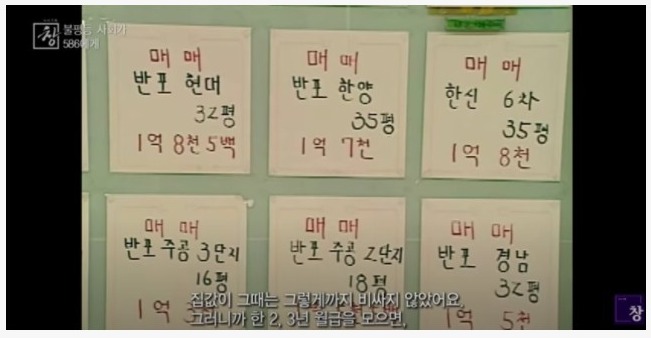 창
불평등 사회가
586에게
매매
반포 현대
32평
1억 8천 5백
매매
반포 한양
35평
1억 7천
매매
한신 6차
35평
1억 8천
매매
반포 주공 3단지
16평
1억
매매
반포 주공 2단지
18평
매매
반포 경남
32평
1억 5천
집값이 그때는 그렇게까지 비싸지 않았어요,
그러니까 한 2, 3년 월급을 모으면,
창